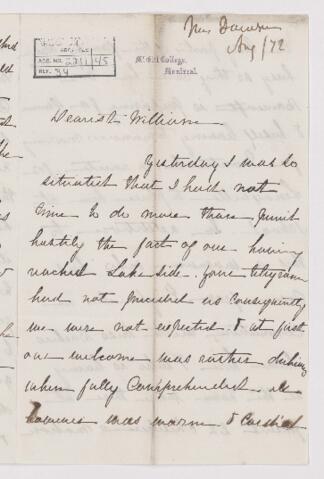 Mrs Dawson
Aug /72
ACC. NO. 2211/45
REF. 34
McGill College,
Montreal.
Dearest William
Yesterday I was so
situated that I had not
time to do more than
hastily the fact of our having
reached Lake side. Your telegram
had not preceded us consequently
we were not expected. & at first
our welcome was rather dubious
when fully comprehended all
however was warm & cordial